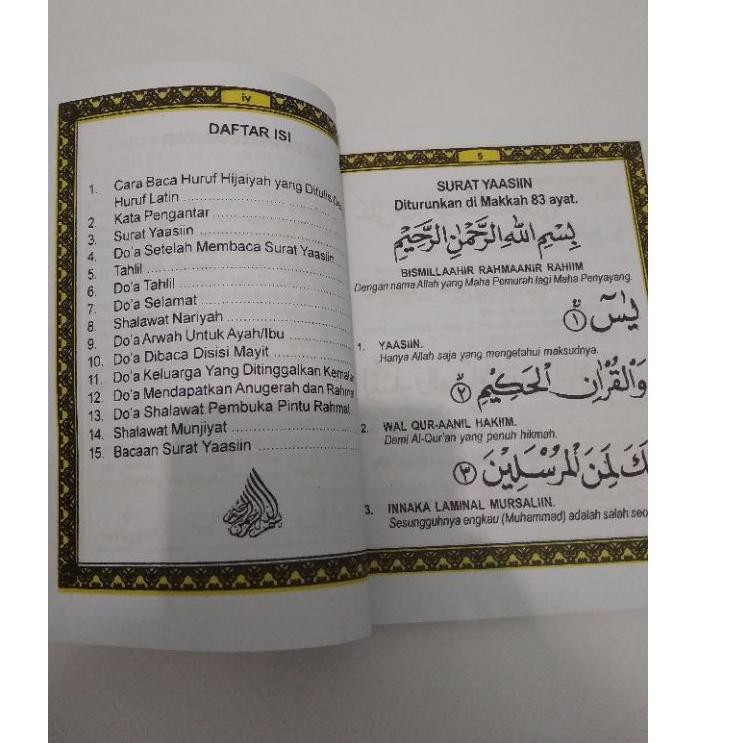 iv
DAFTAR ISI
1. Cara Baca Huruf Hijaiyah yang Ditulis
Huruf Latin
2. Kata Pengantar
3. Surat Yaasiin
4. Do'a Setelah Membaca Surat Yaasiin
5. Tahlil
6. Do'a Tahlil
7. Do'a Selamat
8. Shalawat Nariyah
9. Do'a Arwah Untuk Ayah/Ibu
10. Do'a Dibaca Disisi Mayit
11. Do'a Keluarga Yang Ditinggalkan
12. Do'a Mendapatkan Anugerah dan Rahmat
13. Do'a Shalawat Pembuka Pintu Rahmat
14. Shalawat Munjiyat
15. Bacaan Surat Yaasiin
5
SURAT YAASIIN
Diturunkan di Makkah 83 ayat.
بِسْمِ اللهِ الرَّحْمٰنِ الرَّحِيْمِ
BISMILLAAHIR RAHMAANIR RAHIIM
Dengan nama Allah yang Maha Pemurah lagi Maha Penyayang.
يٰسۤ ۚ ﴿١﴾
1. YAASIIN.
Hanya Allah saja yang mengetahui maksudnya.
وَالْقُرْاٰنِ الْحَكِيْمِ ۙ ﴿٢﴾
2. WAL QUR-AANIL HAKIIM.
Demi Al-Qur'an yang penuh hikmah.
لَمِنَ الْمُرْسَلِيْنَ ﴿٣﴾
3. INNAKA LAMINAL MURSALIIN.
Sesungguhnya engkau (Muhammad) adalah salah seo